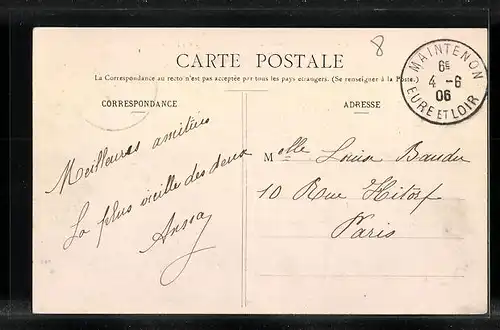 8
CARTE POSTALE
La Correspondance au recto n'est pas acceptée par tous les pays étrangers. (Se renseigner à la Poste.)
MAINTENON
6E
4 - 6
06
EURE ET LOIR
CORRESPONDANCE
ADRESSE
Meilleures amitiés
La plus vieille des deux
Anna
Melle Louise Baudu
10 Rue Hitorf
Paris